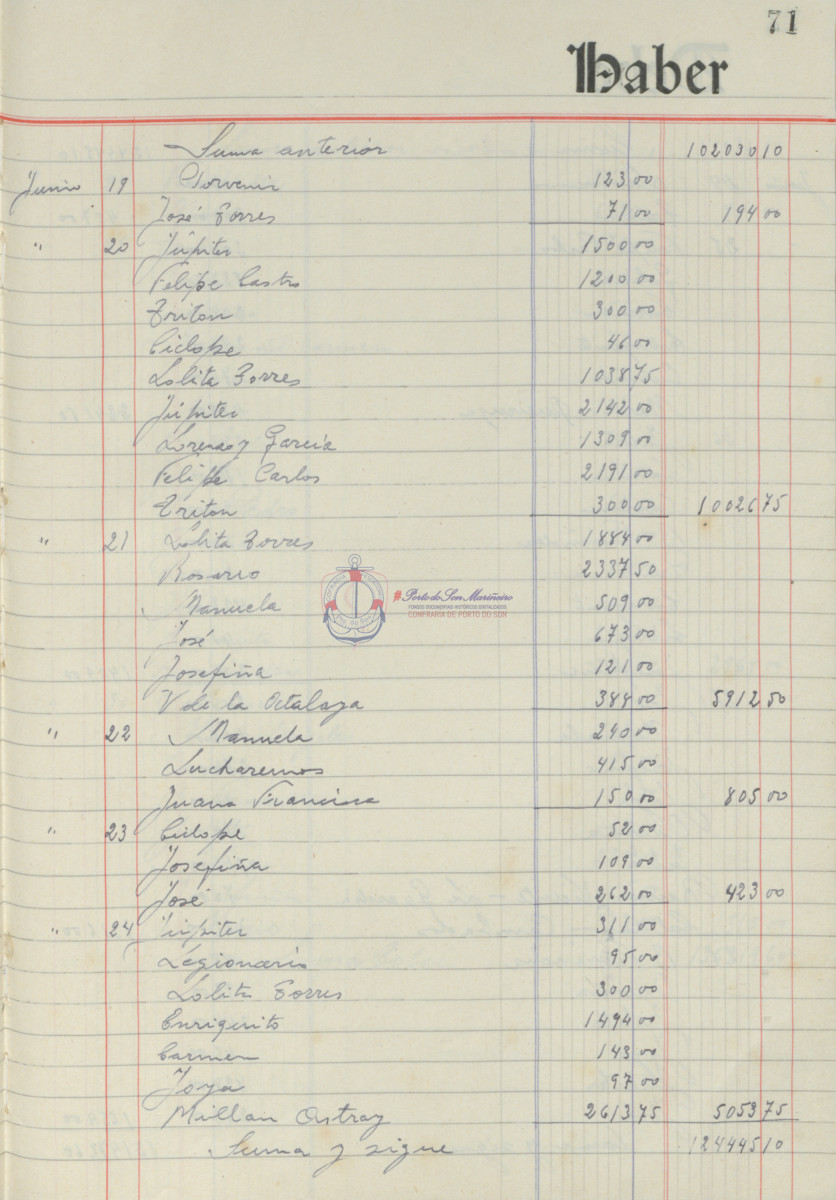 71
Haber
Suma anterior 102030 10
Junio 19 Porvenir 123 00
José Torres 71 00 194 00
" 20 Júpiter 1500 00
Felipe Castro 1200 00
Triton 300 00
Ciclope 46 00
Lolita Torres 1038 75
Júpiter 2142 00
Lorenzo y García 1309 00
Felipe Carlos 2191 00
Triton 300 00 10026 75
" 21 Lolita Torres 1884 00
Rosario 2337 50
Manuela 509 00
José 673 00
Josefiña 121 00
V de la Atalaya 388 00 5912 50
" 22 Manuela 240 00
Lucharemos 415 00
Juana Francisca 150 00 805 00
" 23 Ciclope 52 00
Josefiña 109 00
José 262 00 423 00
" 24 Júpiter 311 00
Legionario 95 00
Lolita Torres 300 00
Enriquito 1494 00
Carmen 143 00
Joya 97 00
Millan Astray 2613 75 5053 75
Suma y sigue 124445 10
#Porto do Son Mariñeiro
FONDOS DOCUMENTAIS HISTÓRICOS DIXITALIZADOS
CONFRARÍA DE PORTO DO SON